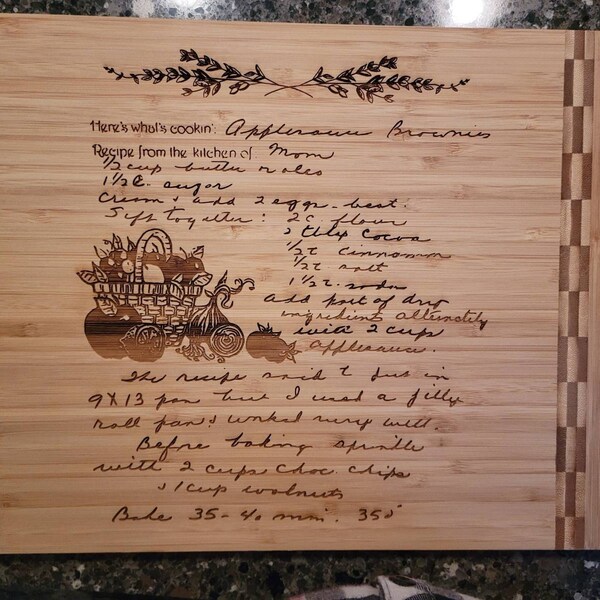 Here's what's cookin': Applesauce Brownies
Recipe from the kitchen of: Mom
1/2 cup butter or oleo
1 1/2 C. sugar
Cream & add 2 eggs - beat.
Sift together: 2 C. flour
2 tblsp Cocoa
1/2 t cinnamon
1/2 t salt
1 1/2 t. soda
add part of dry
ingredients alternately
with 2 cups
applesauce.
The recipe said to put in
9X13 pan but I used a jelly
roll pan & worked very well.
Before baking sprinkle
with 2 cups choc. chips
& 1 cup walnuts
Bake 35-40 min. 350°